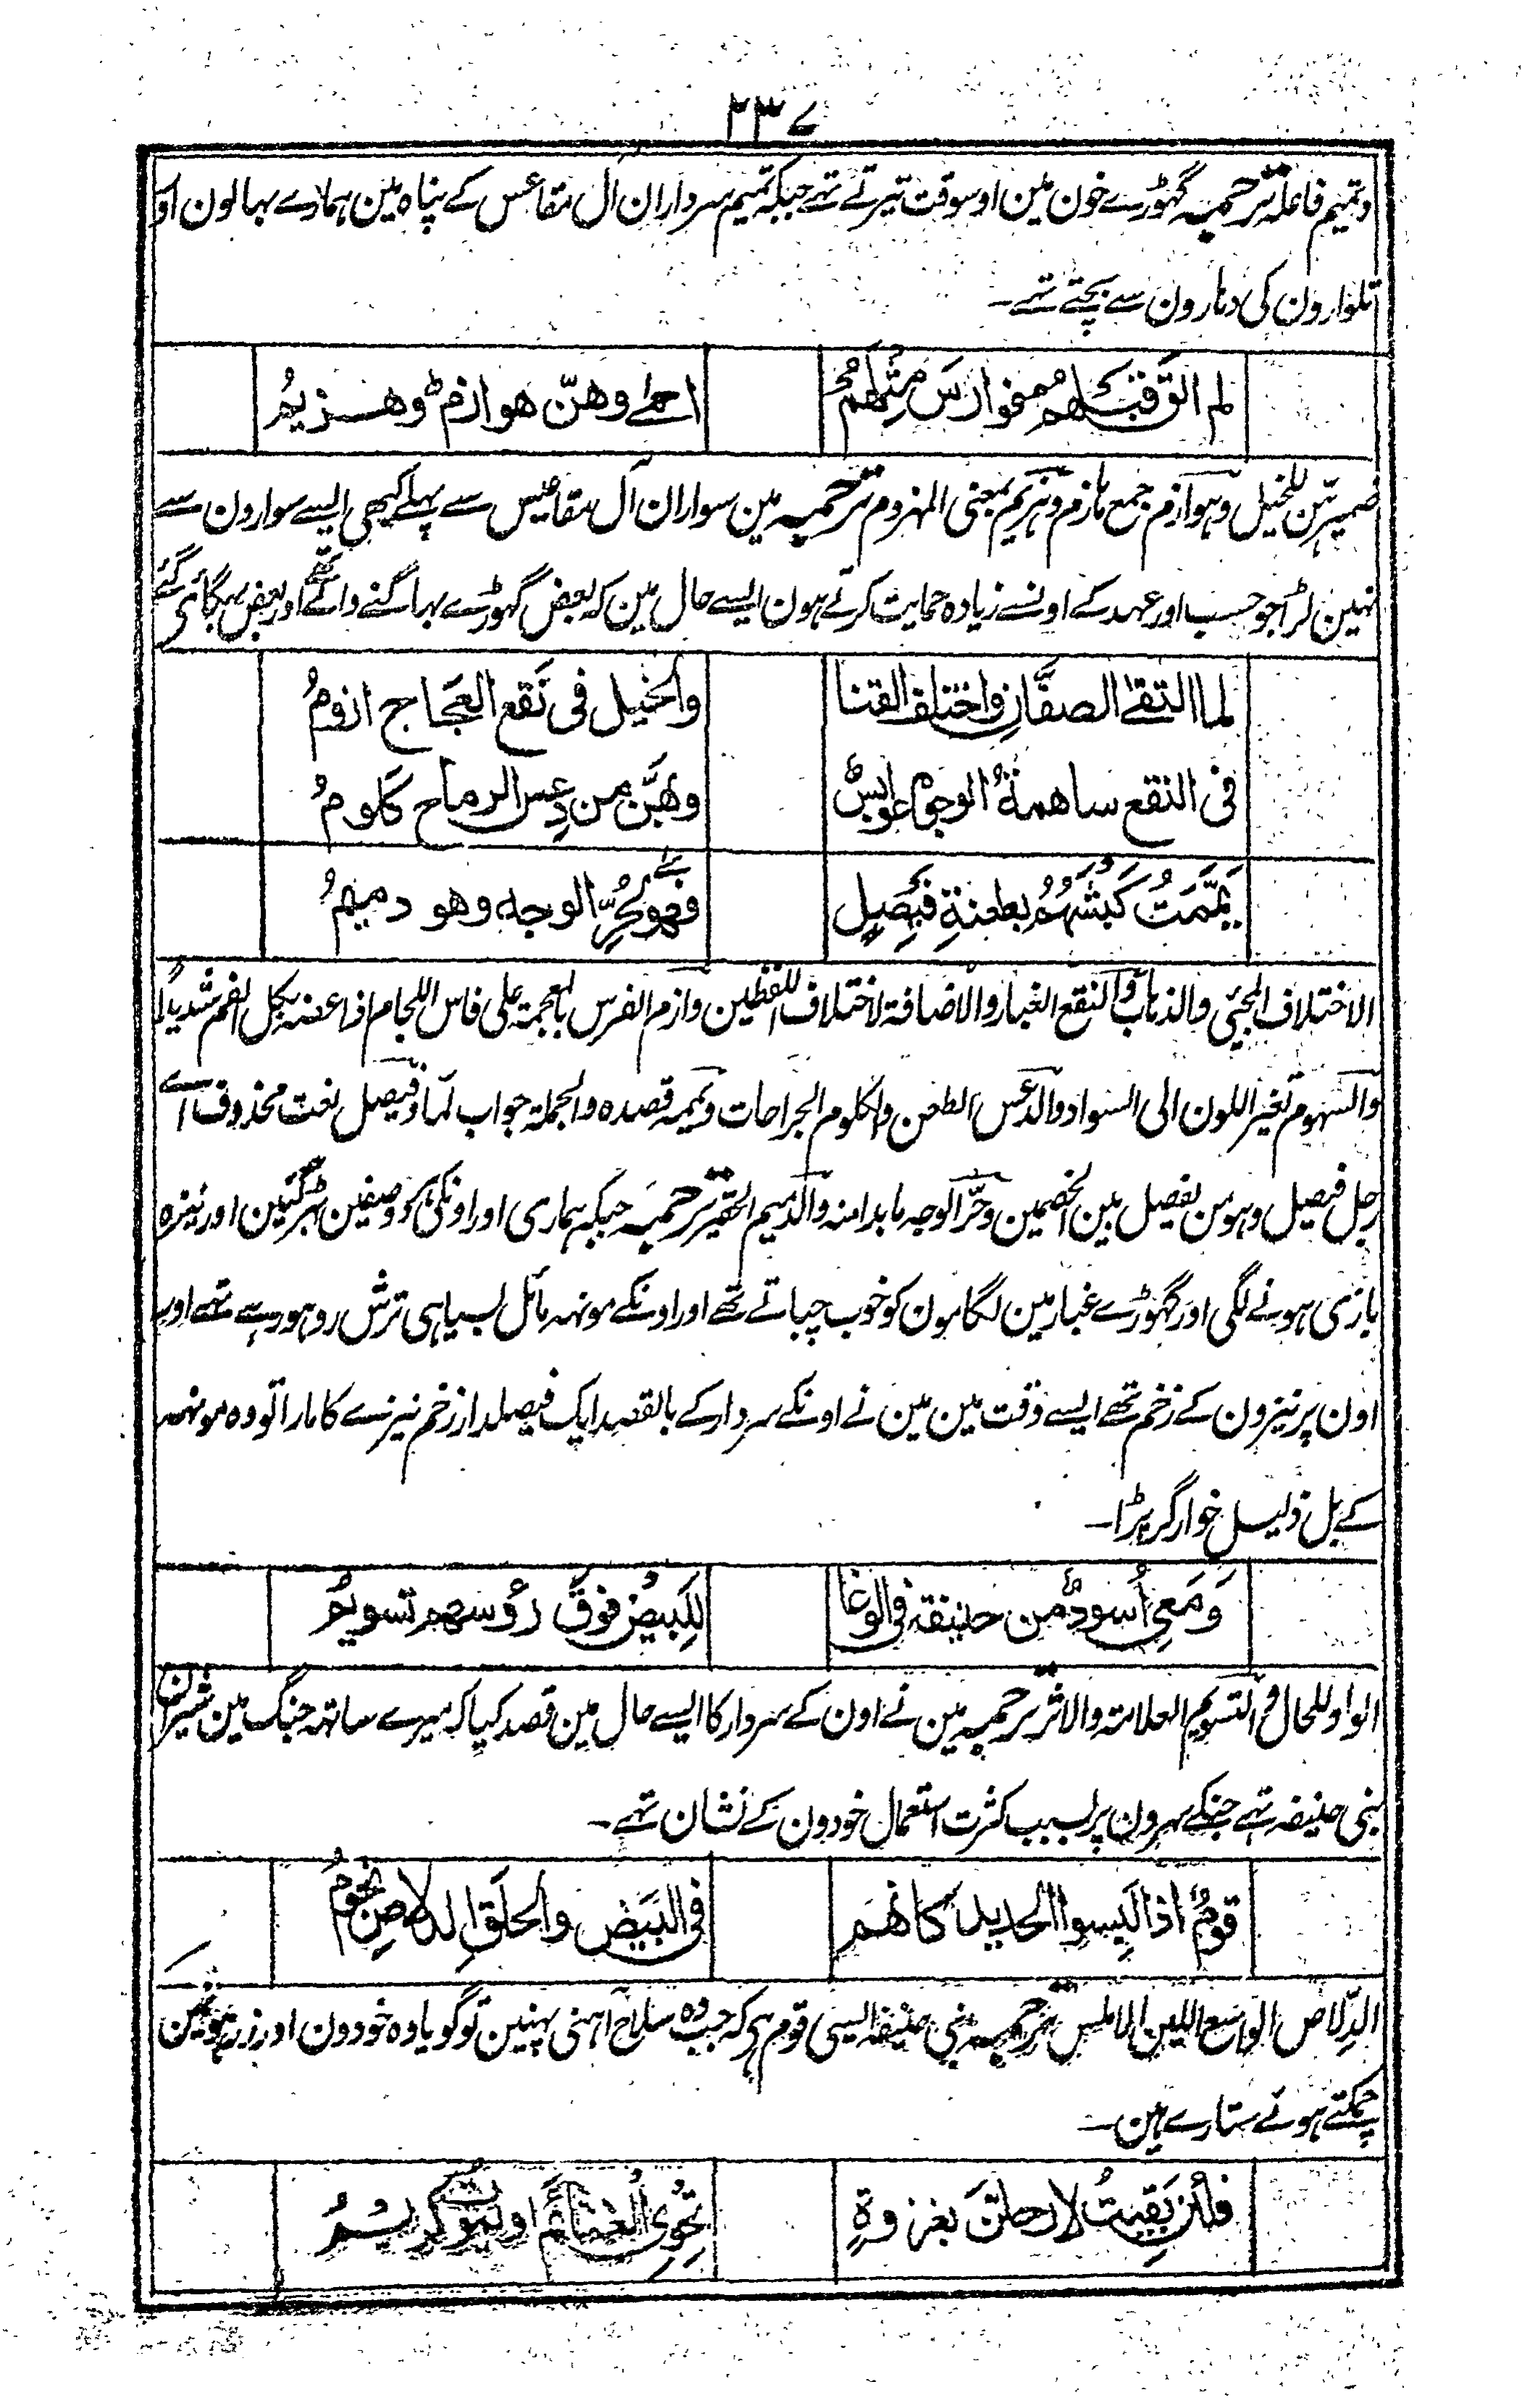 ۲۳۷
وتمیم فاعلہ ترجمہ گہوڑے خون مین اوسوقت تیرتے تہے جبکہ تمیم سرداران آل مقاعس کے پناہ مین ہمارے بہالون اور
تلوارون کی دہارون سے بچتے تہے۔
لم الق قبلهم فوارس مثلهم احمى وهنّ هوازمٌ وهزيمُ
ضمیر ہن للخیل وہوازم جمع ہازم وہزیم بمعنی المہزوم ترجمہ مین سواران آل مقاعس سے پہلے کبھی ایسے سوارون سے
نہین لڑا جو حسب اور عہد کے اونسے زیادہ حمایت کرتے ہون ایسے حال مین کہ بعض گہوڑے بہاگنے والے تھے اور بعض بہگائی گئے
لما التقى الصفّانِ واختلف القنا والخيل في نَقع العَجاج ازومُ
في النقع ساهمةُ الوجوهِ عوابسٌ وبهنّ من دعس الرماح كلومُ
يمّمتُ كبشهمُ بطعنةِ فيصلٍ فهوى لحُرّ الوجه وهو دميمُ
الاختلاف المجئی والذہاب والنقع الغبار والاضافۃ لاختلاف اللفظین وازم الفرس بالمعجمۃ علی فاس اللجام اذا عضہ بکل الفم شدیدا
والسہوم تغیر اللون الی السواد والدعس الطعن والکلوم الجراحات ویممہ قصدہ والجملۃ جواب لما وفیصل نعت محذوف اے
رجل فیصل وہو من یفصل بین الخصمین وحرّ الوجہ ما بدا منہ والدمیم الحقیر ترجمہ جبکہ ہماری اور اونکی دو صفین بہڑ گئین اور نیزہ
بازی ہونے لگی اور گہوڑے غبار مین لگامون کو خوب چباتے تھے اور اونکے مونہہ مائل بسیاہی ترش رو ہو رہے تھے اور
اون پر نیزون کے زخم تھے ایسے وقت مین مین نے اونکے سردار کے بالقصد ایک فیصلدار زخم نیزے کا مارا تو وہ مونہہ
کے بل ذلیل خوار گر پڑا۔
وَمَعي أُسودٌ من حنيفة في الوغا للبيض فوقَ رؤسهم تسويمُ
الواو للحال والتسویم العلامۃ والاثر ترجمہ مین نے اون کے سردار کا ایسے حال مین قصد کیا کہ میرے ساتہہ جنگ مین شیران
بنی حنیفہ تہے جنکے سرون پر بسبب کثرت استعمال خودون کے نشان تہے۔
قومٌ اذا لبسوا الحديد كانهم في البَيض والحلَقِ الدلاصِ نجومُ
الدلاص الواسع اللین الاملس ترجمہ بنی حنیفہ ایسی قوم ہی کہ جب وہ سلاح آہنی پہنین تو گویا وہ خودون اور زرہونمین
چمکتے ہوئے ستارے ہین۔
فلئن بَقيتُ لارحلنّ بغزوةٍ تحوي الغنائم او يموت كريمُ